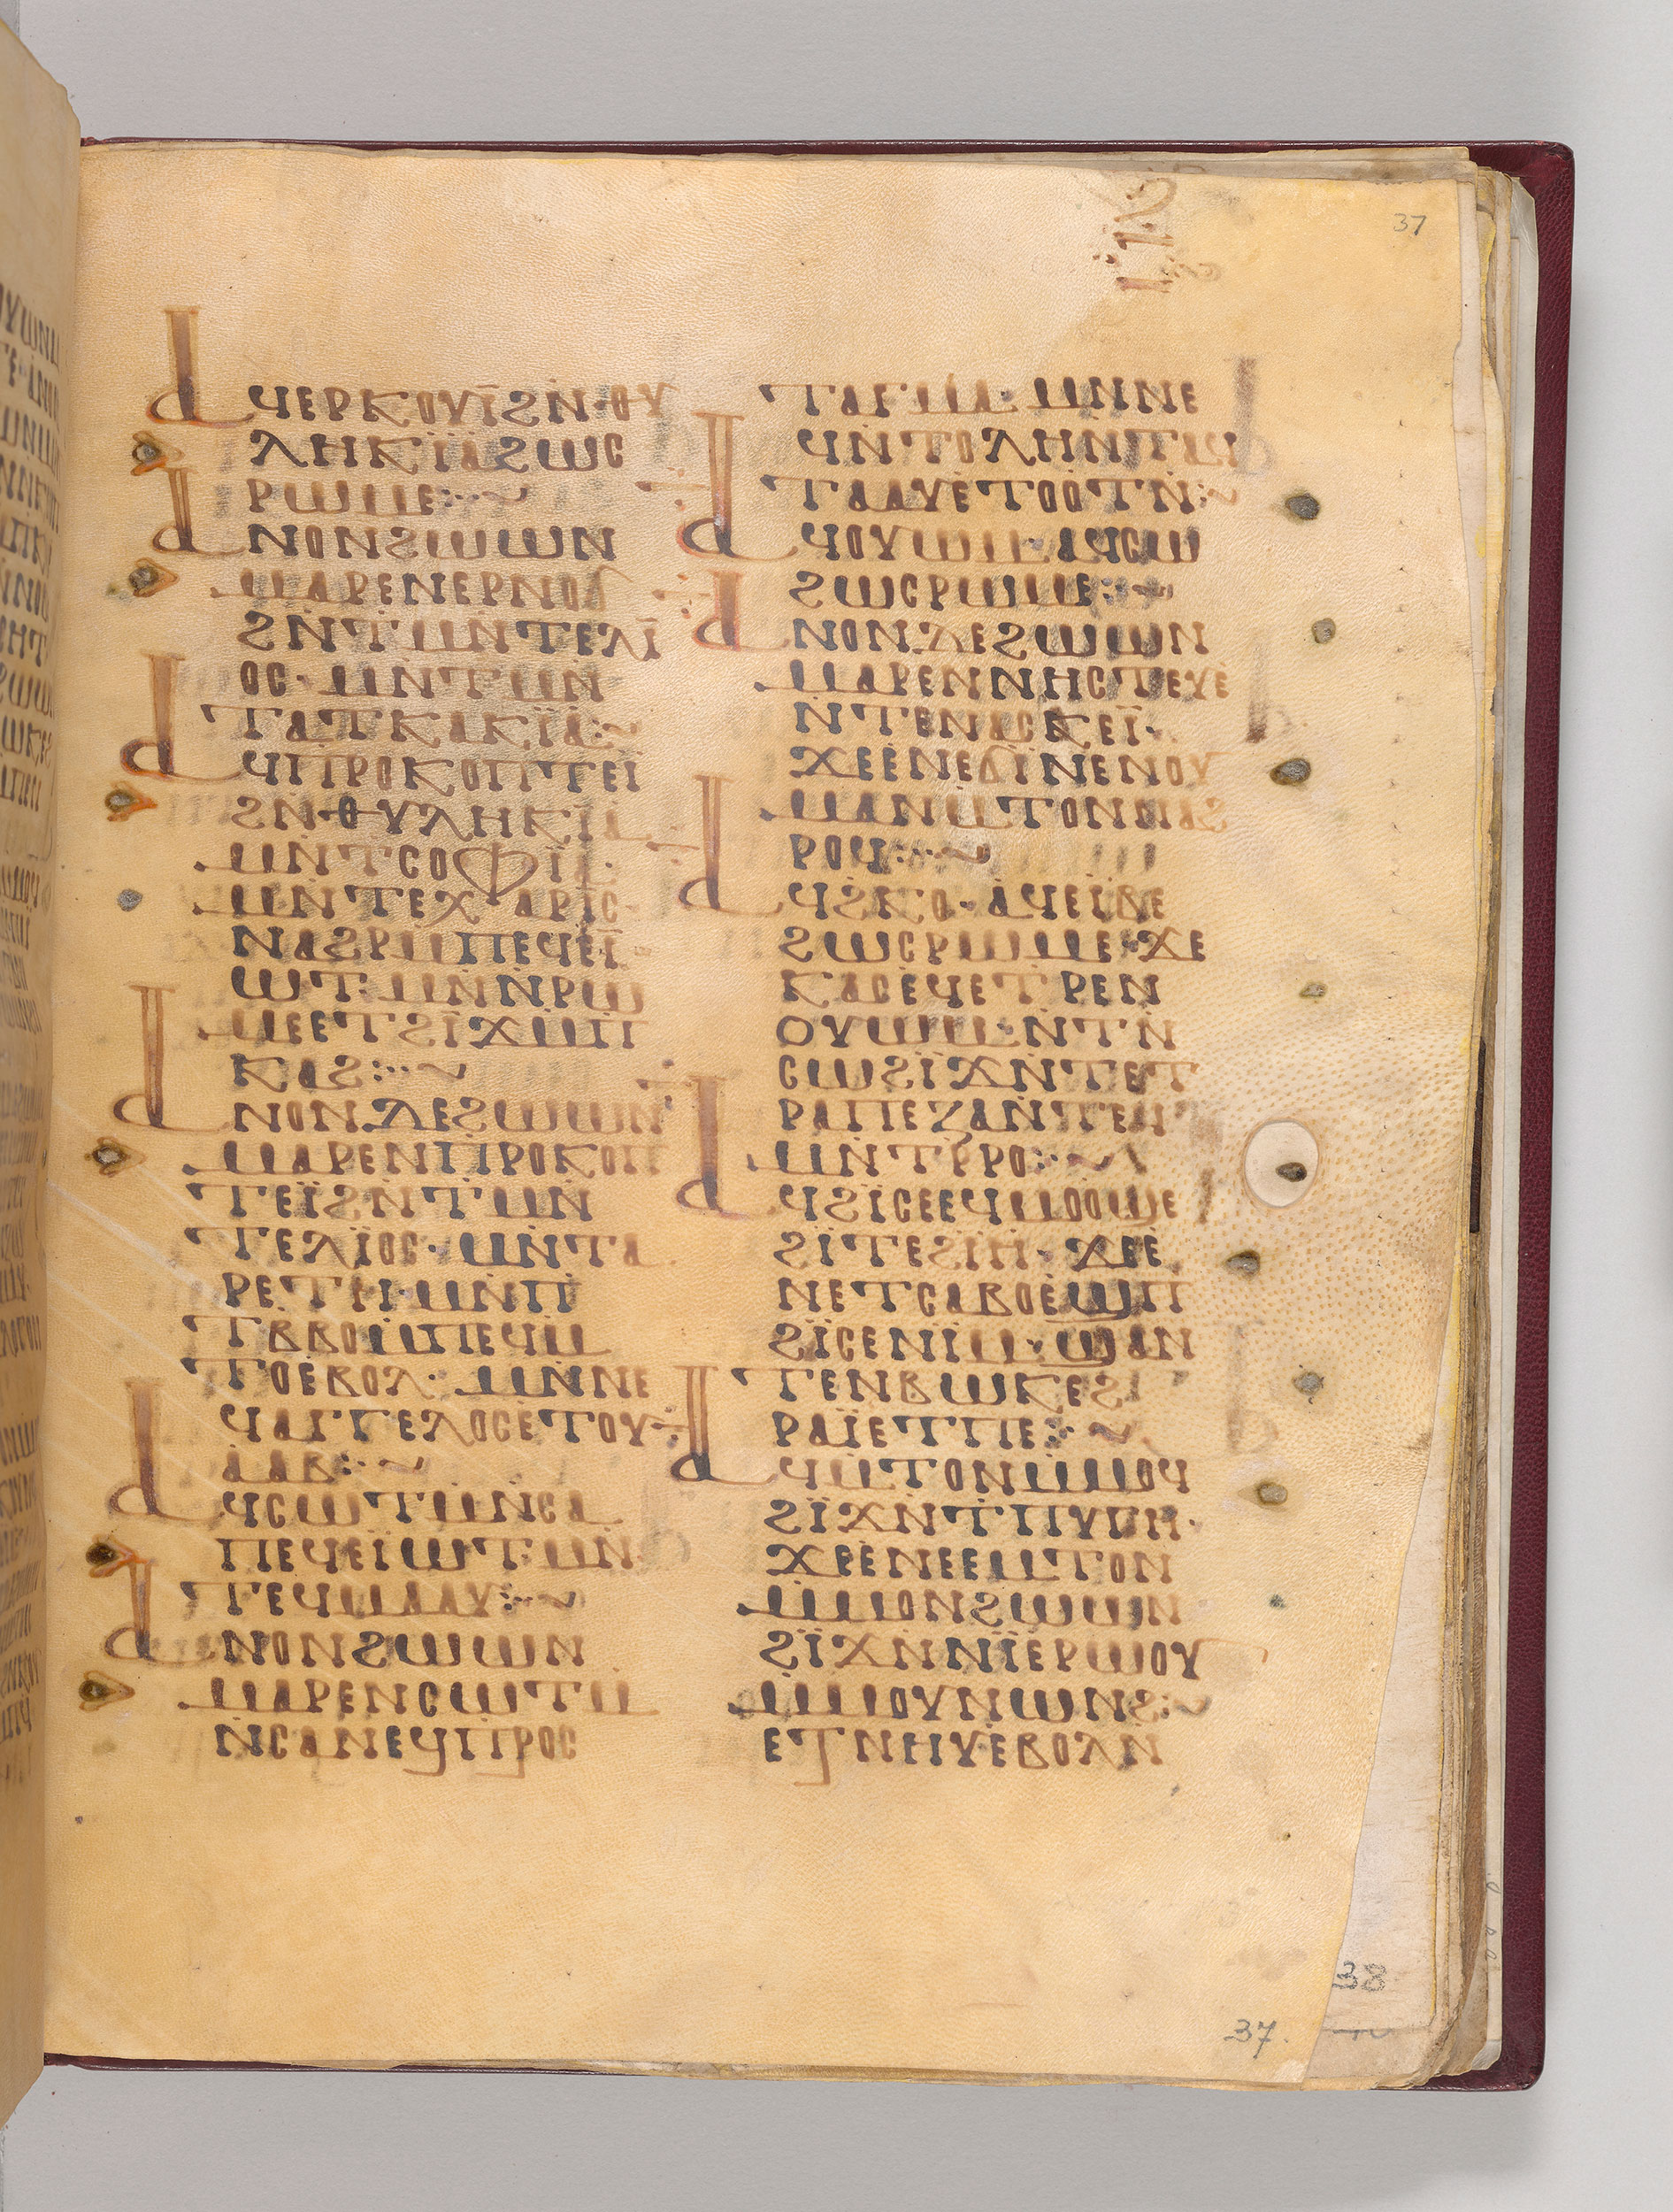 37
ⲁϥⲉⲣⲕⲟⲩⲓ̈ϩⲛ̇ⲑⲩ
ⲗⲏⲕⲓ̈ⲁϩⲱⲥ
ⲣⲱⲙⲉ:·~
ⲁⲛⲟⲛϩⲱⲱⲛ
ⲙⲁⲣⲉⲛⲉⲣⲛⲟϭ
ϩⲛ̇ⲧⲙⲛ̇ⲧⲉⲗⲓ̈
ⲟⲥ·ⲙⲛ̇ⲧⲙⲛ̇
ⲧⲁⲧⲕⲁⲕⲓ̈ⲁ:~
ⲁϥⲡⲣⲟⲕⲟⲡⲧⲉⲓ̈
ϩⲛ̇ⲑⲩⲗⲏⲕⲓⲁ
ⲙⲛ̇ⲧⲥⲟⲫⲓ̈ⲁ·
ⲙⲛ̇ⲧⲉⲭⲁⲣⲓⲥ·
ⲛⲁϩⲣⲙⲡⲉϥⲉⲓ̈
ⲱⲧ:ⲙⲛ̇ⲛ̇ⲣⲱ
ⲙⲉⲉⲧϩⲓ̈ϫⲙⲡ
ⲕⲁϩ:·~
ⲁⲛⲟⲛⲇⲉϩⲱⲱⲛ
ⲙⲁⲣⲉⲛⲡⲣⲟⲕⲟⲡ
ⲧⲉⲓ̈ϩⲛ̇ⲧⲙⲛ̇
ⲧⲉⲗⲓ̈ⲟⲥ·ⲙⲛ̇ⲧⲁ
ⲣⲉⲧⲏ·ⲙⲛ̇ⲡ
ⲧⲃⲃⲟⲙⲡⲉϥⲙ
ⲧⲟⲉ̇ⲃⲟⲗ·ⲙⲛ̇ⲛⲉ
ϥⲁⲅⲅⲉⲗⲟⲥⲉ̇ⲧⲟⲩ
ⲁⲁⲃ:·~
ⲁϥⲥⲱⲧⲙⲛ̇ⲥⲁ
ⲡⲉϥⲉⲓ̈ⲱⲧ:ⲙⲛ̇
ⲧⲉϥⲙⲁⲁⲩ:·~
ⲁⲛⲟⲛϩⲱⲱⲛ
ⲙⲁⲣⲉⲛⲥⲱⲧⲙ
ⲛ̇ⲥⲁⲛⲉϥⲡⲣⲟⲥ
ⲧⲁⲅⲙⲁ·ⲙⲛ̇ⲛⲉ
ϥⲛ̇ⲧⲟⲗⲏⲛ̇ⲧⲁϥ
ⲧⲁⲁⲩⲉ̇ⲧⲟⲟⲧⲛ̇:~
ⲁϥⲟⲩⲱⲙ·ⲁϥⲥⲱ
ϩⲱⲥⲣⲱⲙⲉ:·~
ⲁⲛⲟⲛⲇⲉϩⲱⲱⲛ
ⲙⲁⲣⲉⲛⲛⲏⲥⲧⲉⲩⲉ
ⲛ̇ⲧⲉⲛⲁⲥⲕⲉⲓ̈·
ϫⲉⲉ̇ⲛⲉϭⲓ̈ⲛⲉⲛⲟⲩ
ⲙⲁⲛⲙ̇ⲧⲟⲛⲛⲁϩ
ⲣⲟϥ:·~
ⲁϥϩⲕⲟ·ⲁϥⲉⲓ̈ⲃⲉ
ϩⲱⲥⲣⲱⲙⲉ:ϫⲉ
ⲕⲁⲥⲉ̇ϥⲉⲧⲣⲉⲛ
ⲟⲩⲱⲙ·ⲛ̇ⲧⲛ̇
ⲥⲱϩⲓ̈ϫⲛ̇ⲧⲉⲧ
ⲣⲁⲡⲉⲍⲁⲛ̇ⲧⲉϥ
ⲙⲛ̇ⲧⲣ̇ⲣⲟ:·~
ⲁϥϩⲓ̈ⲥⲉⲉϥⲙⲟⲟϣⲉ
ϩⲓ̈ⲧⲉϩⲓⲏ·ϫⲉⲉ̇
ⲛⲉⲧⲥⲁⲃⲟⲉ̇ϣⲡ
ϩⲓ̈ⲥⲉⲛⲓⲙ·ϣⲁⲛ
ⲧⲉⲛⲃⲱⲕⲉϩ
ⲣⲁⲓ̈ⲉⲧⲡⲉ:·~
ⲁϥⲙ̇ⲧⲟⲛⲙ̇ⲙⲟϥ
ϩⲓ̈ϫⲛ̇ⲧⲡⲩⲅⲏ·
ϫⲉⲉ̇ⲛⲉⲉⲙⲧⲟⲛ
ⲙ̇ⲙⲟⲛϩⲱⲱⲛ
ϩⲓ̈ϫⲛ̇ⲛⲓ̈ⲉⲣⲱⲟⲩ
ⲙ̇ⲙⲟⲩⲛⲱⲛϩ:~
ⲉⲧⲛⲏⲩⲉ̇ⲃⲟⲗⲛ̇
38
37.